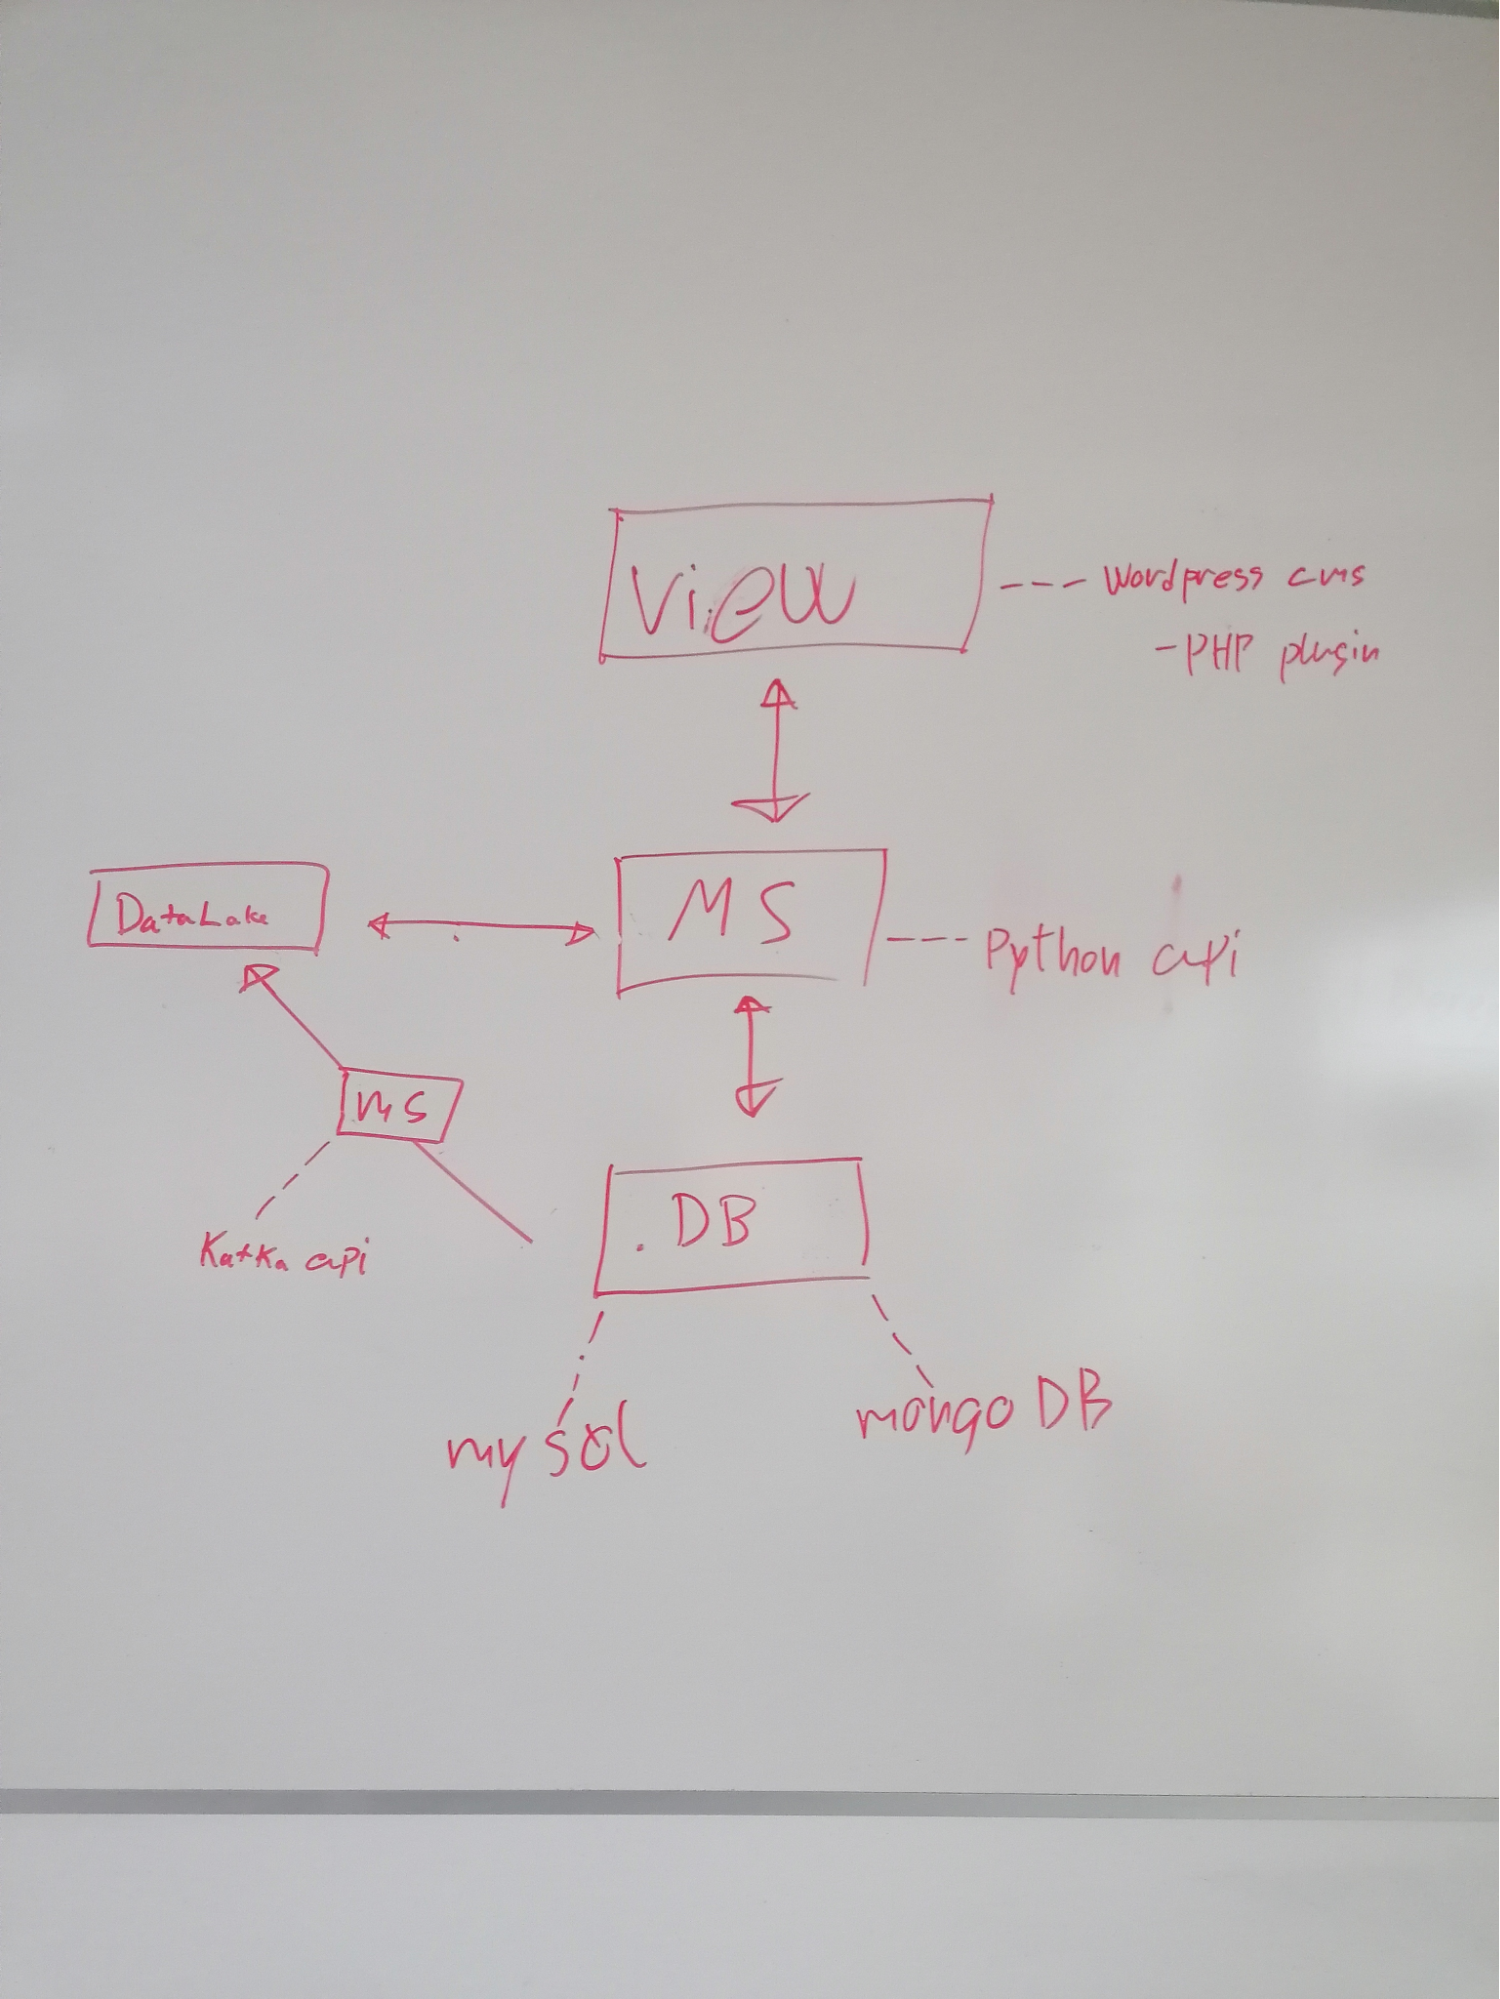 View
--- Wordpress cms
- PHP plugin
DataLake
MS
--- Python api
ms
Kafka api
DB
my sql
mongo DB